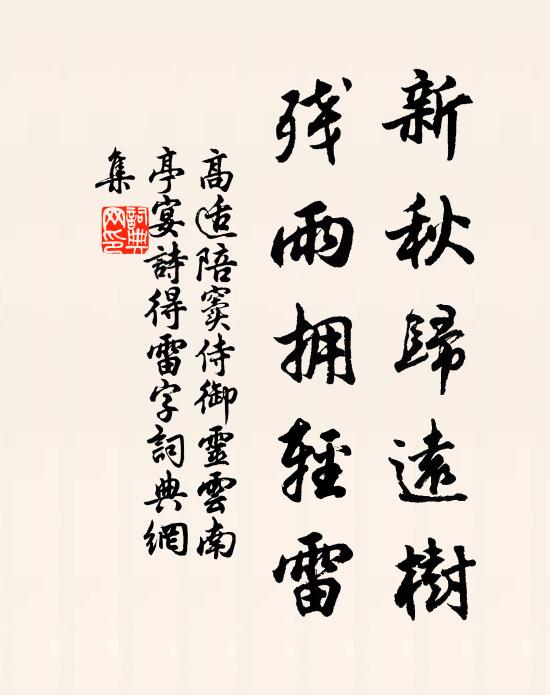 新秋歸遠樹
殘雨拥輕雷
高适陪竇侍御靈雲南
亭宴詩得雷字詞典網
集
詞典
网印